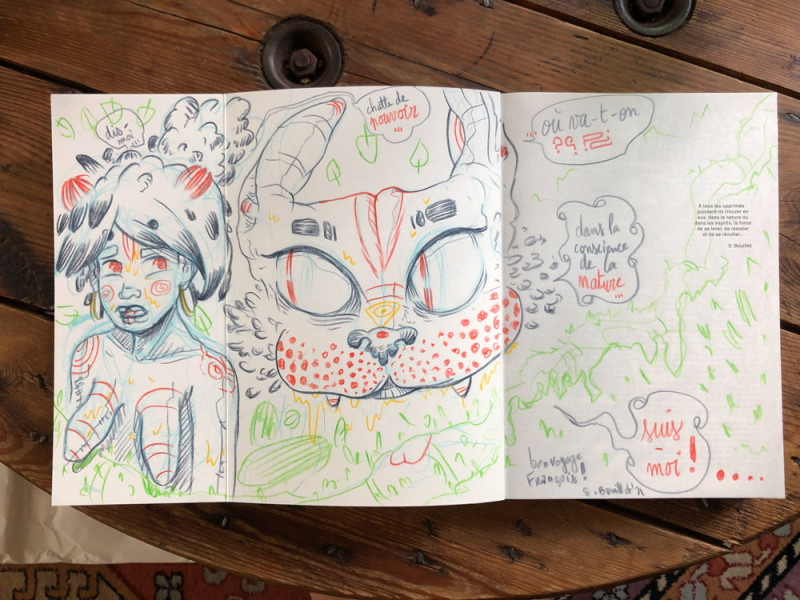 dis-
moi
chatte de
pouvoir
où va-t-on
???
dans la
conscience
de la
nature
À tous les opprimés :
puissent-ils trouver en
eux, dans la nature ou
dans les esprits, la force
de se lever, de résister
et de se révolter...
S. Bouillet
suis
-
moi !
bon voyage
François !